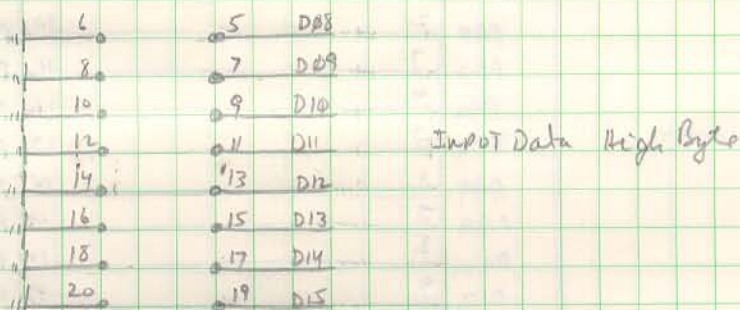 6 5 DØ8
8 7 DØ9
10 9 D1Ø
12 11 D11 INPUT Data High Byte
14 13 D12
16 15 D13
18 17 D14
20 19 D15